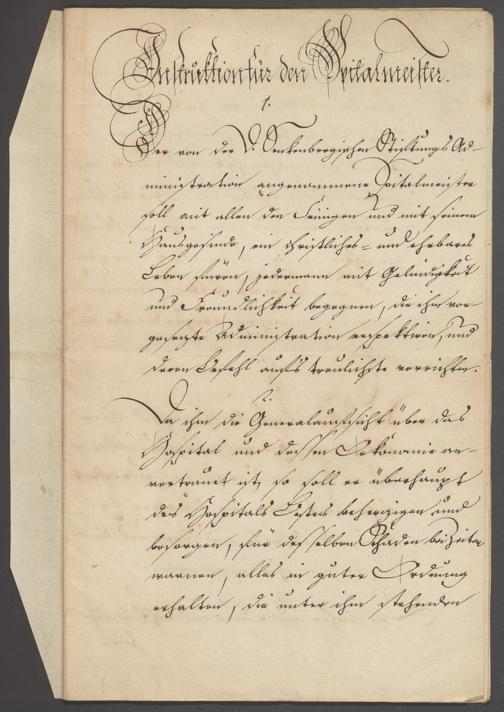 Instruktion für den Spitalmeister.
1.
Der von der D. Senkenbergischen Stiftungs Ad-
ministration angenommene Spitalmeister
soll mit allen den Seinigen und mit seinem
Hausgesinde, ein christliches- und ehrbares
Leben füren, jedermann mit Gelindigkeit
und Freundlichkeit begegnen, die ihm vor-
gesezte Administration respektiren, und
deren Befehl aufs treulichste verrichten.
2.
Da ihm die Generalaufsicht über das
Hospital und dessen Oekonomie an-
vertrauet ist, so soll er überhaupt
des Hospitals Bestes beherzigen und
besorgen, für desselben Schaden bei Zeiten
warnen, alles in guter Ordnung
erhalten, die unter ihm stehenden